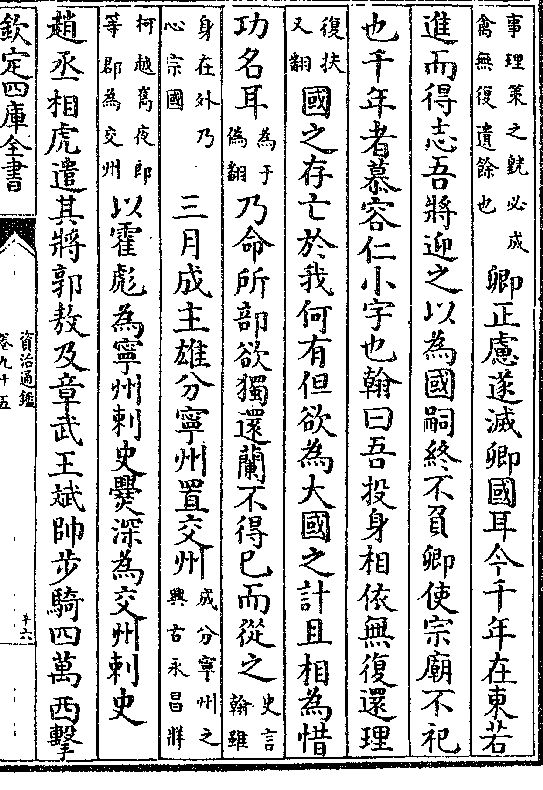 事理策之就必成禽無復遺餘也卿正慮遂滅卿國耳今千年在東若
進而得志吾將迎之以為國嗣終不負卿使宗廟不祀
也千年者慕容仁小字也翰曰吾投身相依無復還理
復扶又翻國之存亡於我何有但欲為大國之計且相為惜
功名耳為于偽翻乃命所部欲獨還蘭不得已而從之史言翰雖
身在外乃心宗國三月成主雄分寧州置交州成分寧州之興古永昌牂
柯越嶲夜郎等郡為交州以霍彪為寧州刺史爨深為交州刺史
趙丞相虎遣其將郭敖及章武王斌帥步騎四萬西擊
欽定四庫全書
資治通鑑
卷九十五
十六